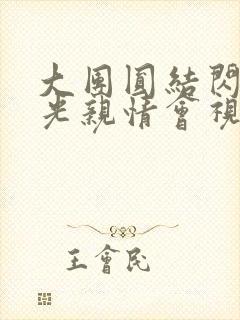 大團圓結閃
光親情會視
王會民